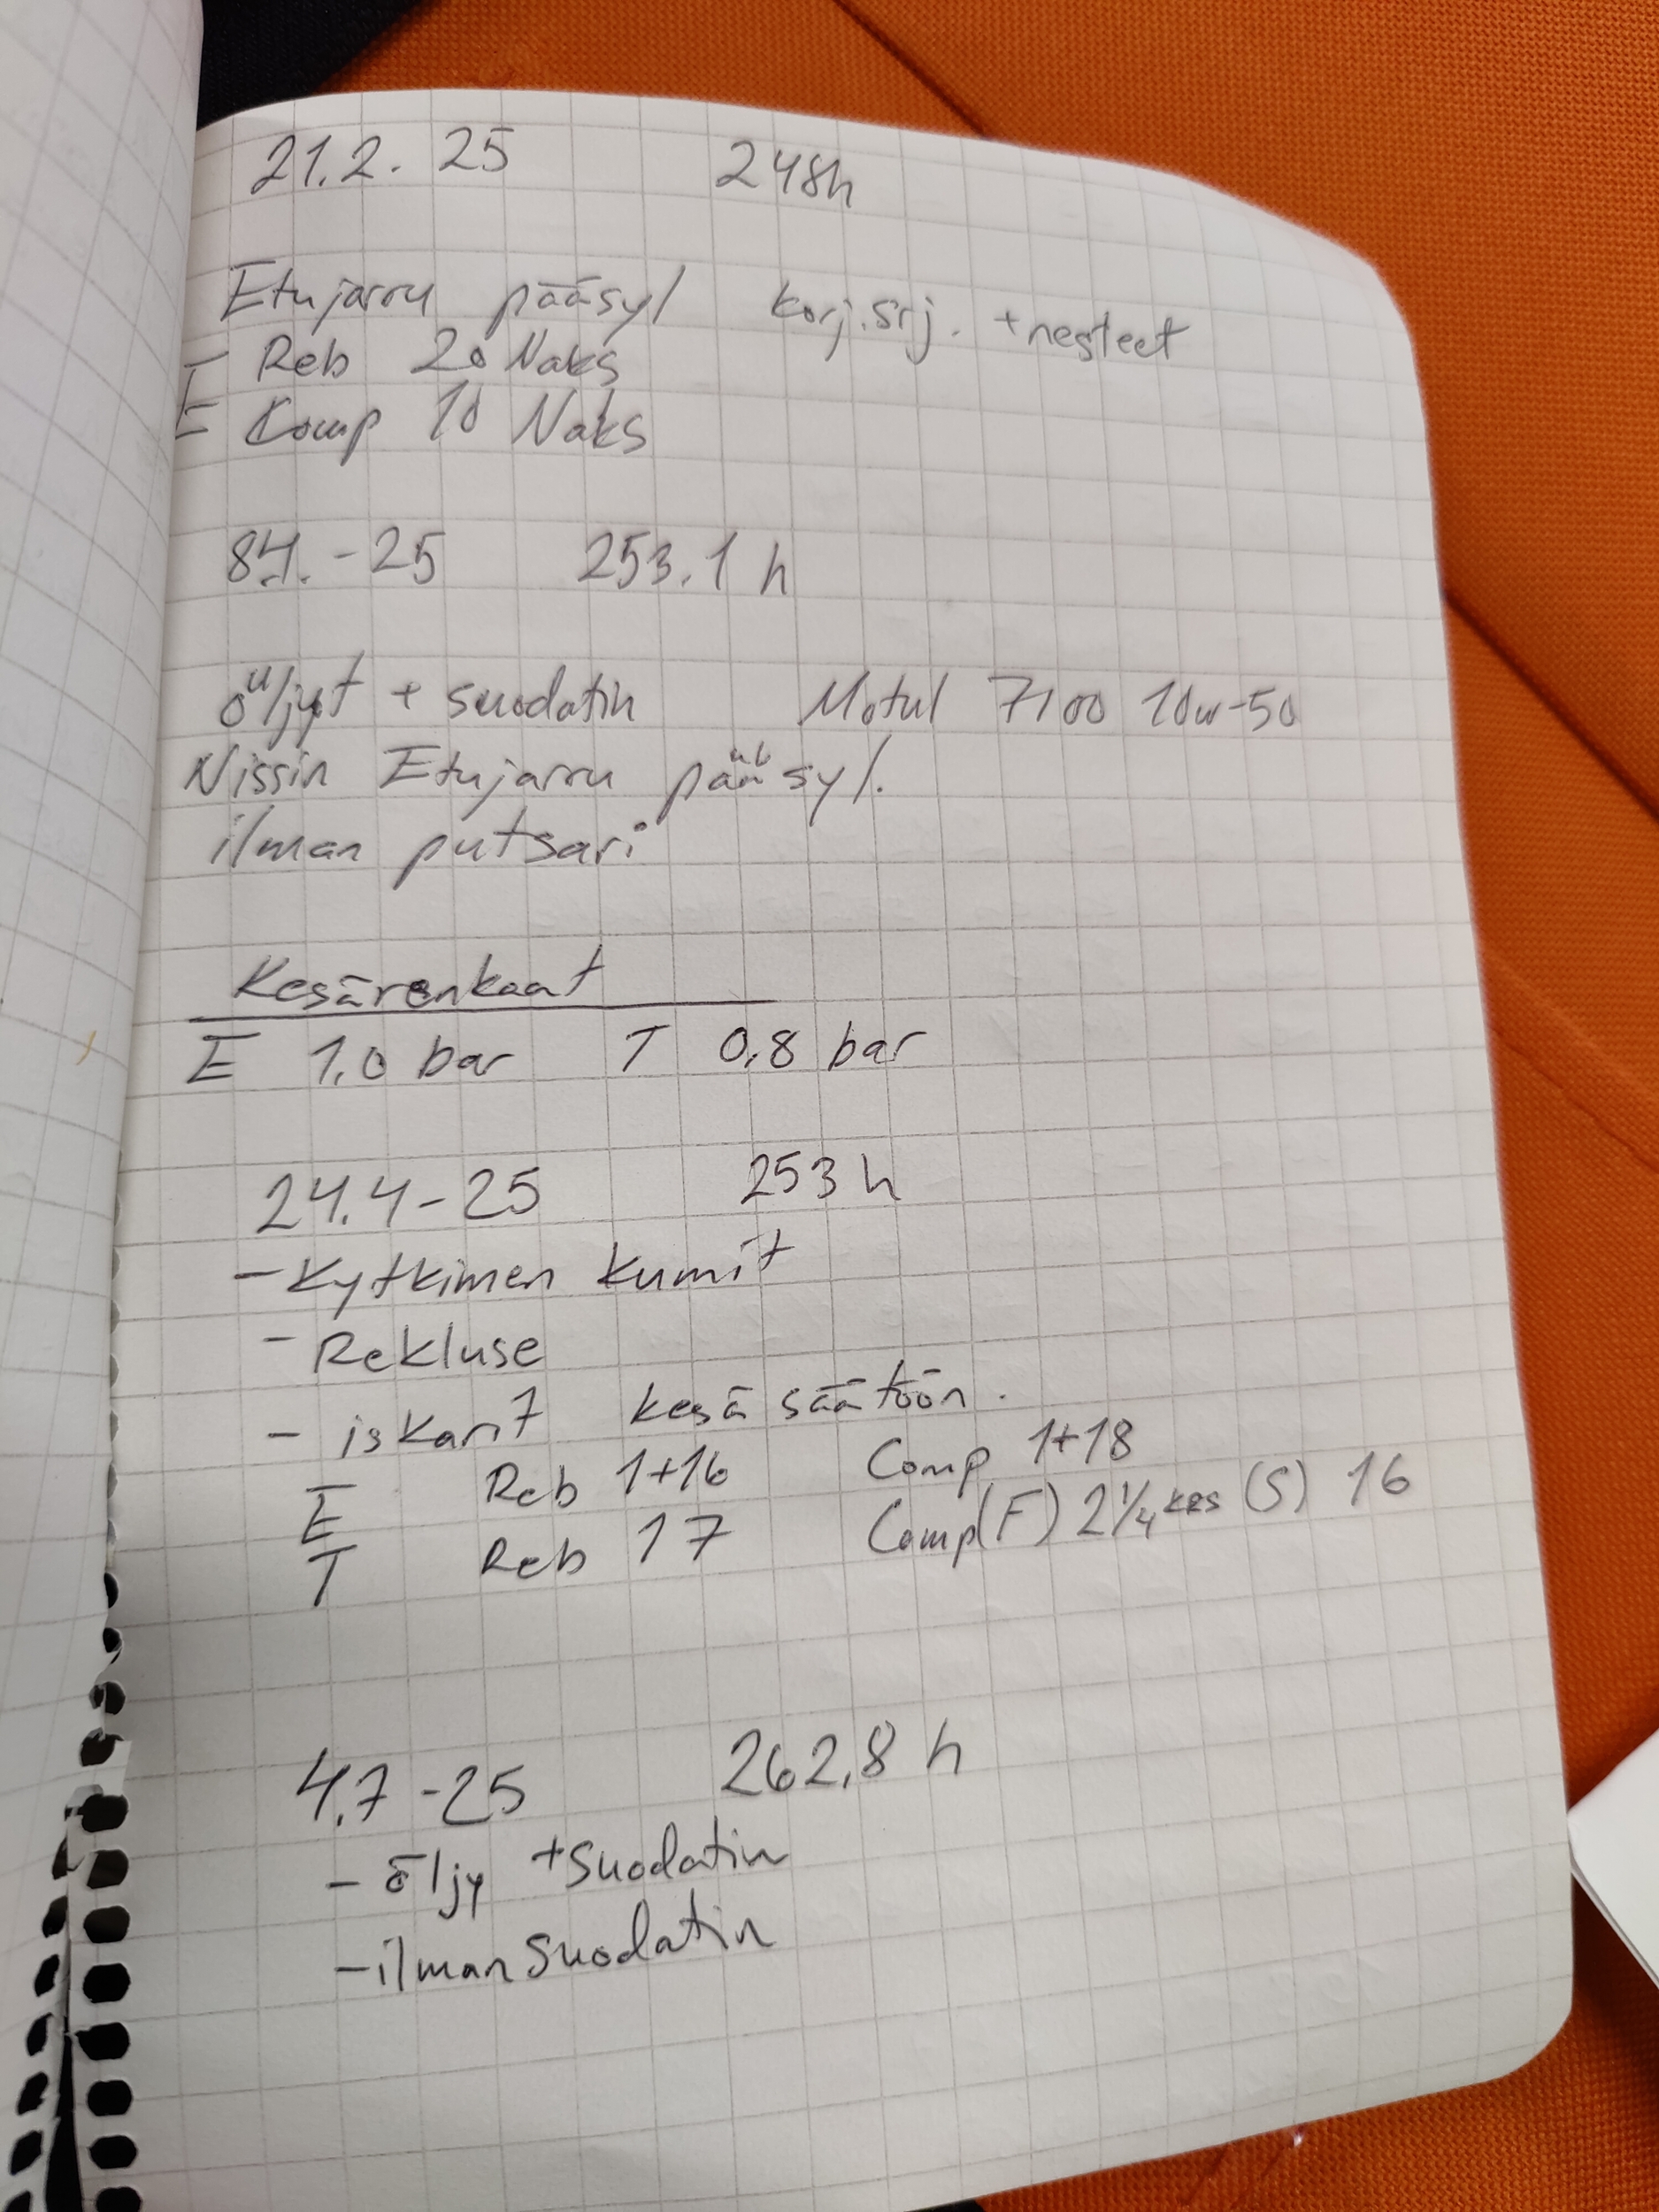 21.2. 25 248h
Etujarru pääsyl korj.srj. + nesteet
E Reb 20 Naks
E Komp 10 Naks
8.4.-25 253.1 h
öljyt + suodatin Motul 7100 10w-50
Nissin Etujarru pääsyl.
ilman putsari
Kesärenkaat
E 1,0 bar T 0,8 bar
24.4-25 253 h
- Kytkimen kumit
- Rekluse
- iskarit kesä säätöön.
E Reb 1+16 Comp 1+18
T Reb 17 Comp(F) 2 1/4 kes (S) 16
4.7-25 262,8 h
- öljy + suodatin
- ilman suodatin